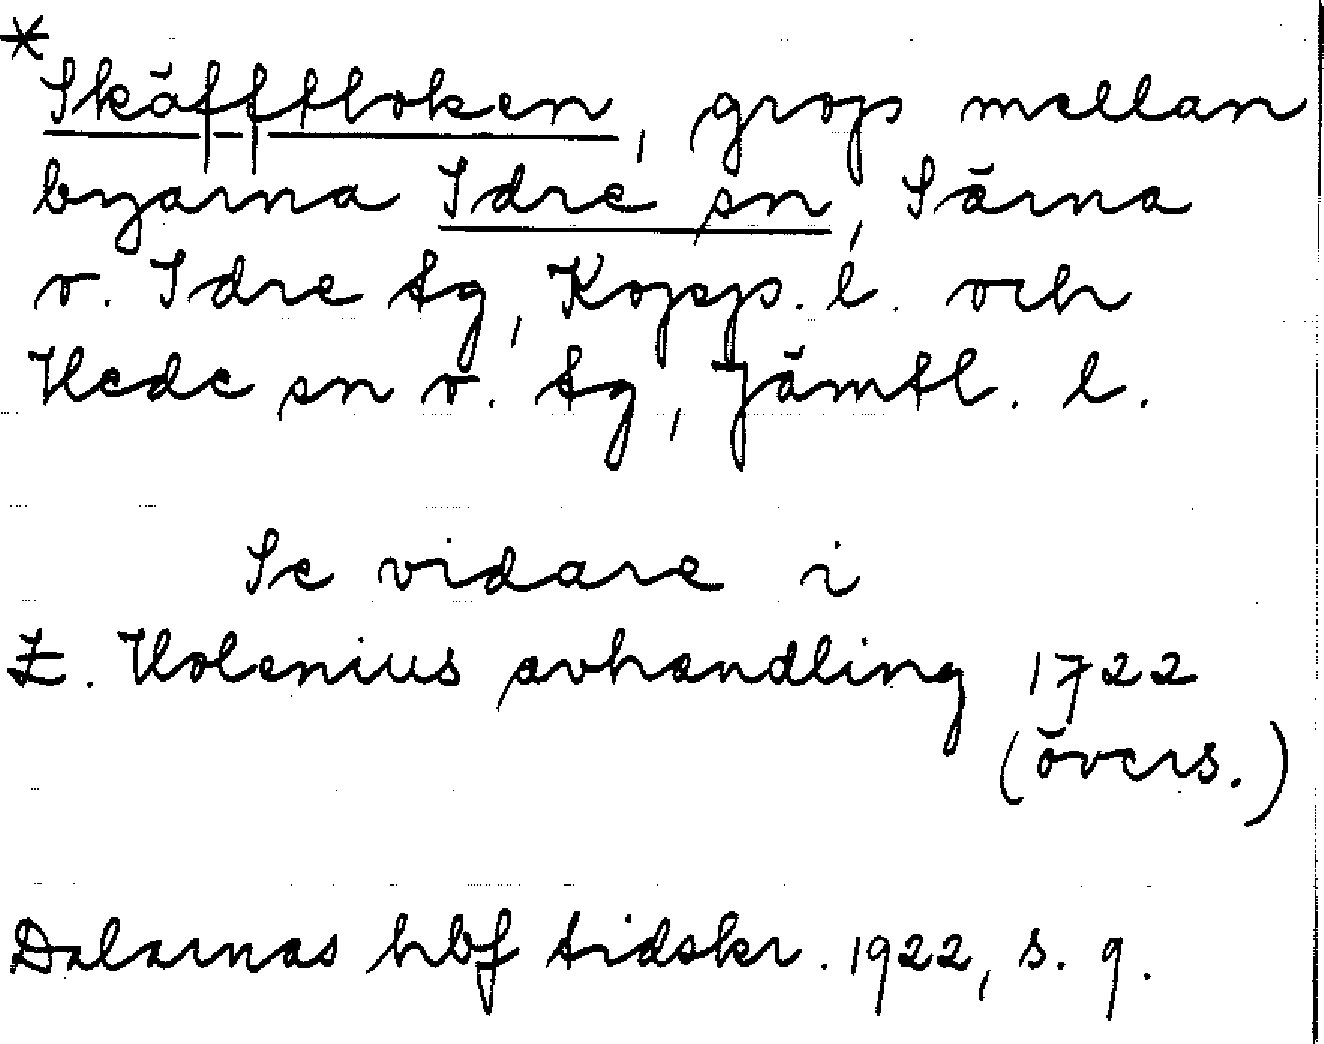 *Skäfftloken, grop mellan
byarna Idre sn, Särna
o. Idre tg, Kopp. l. och
Hede sn o. tg, Jämtl. l.
Se vidare i
E. Holenius avhandling 1722
(övers.)
Dalarnas hbf tidskr. 1922, s. 9.